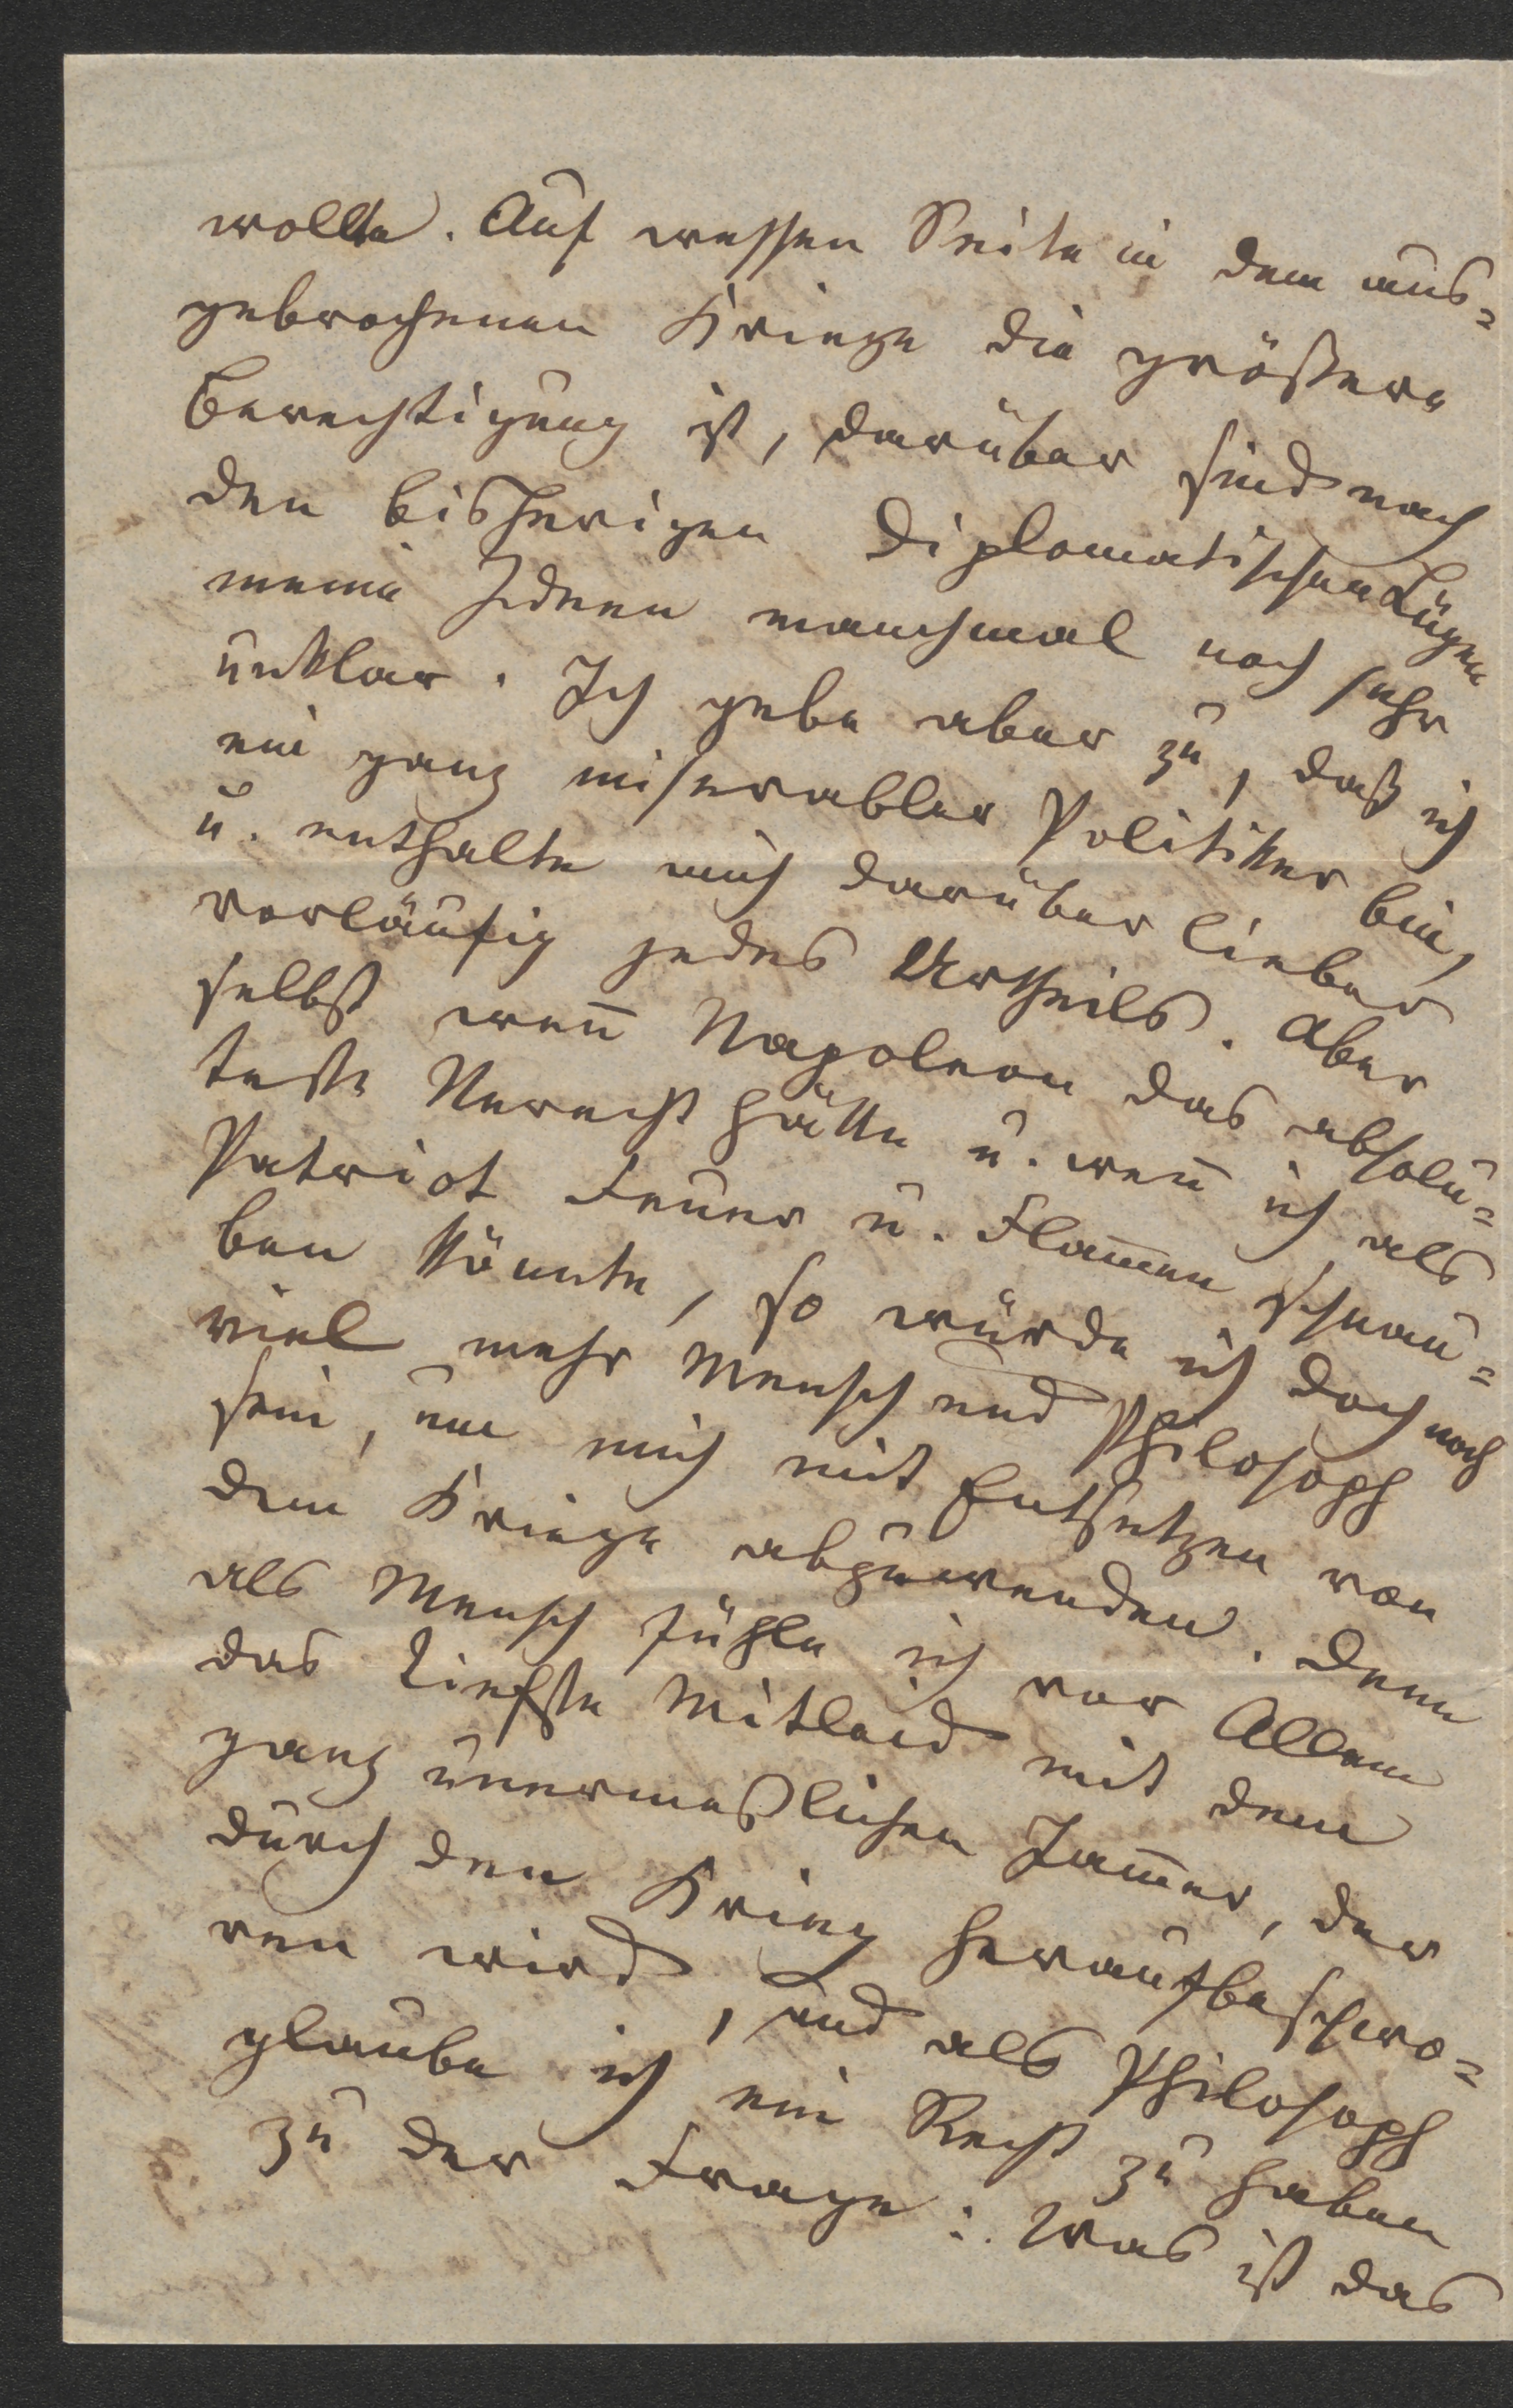 wollte. Auf wessen Seite in dem aus-
gebrochenen Kriege die größere
Berechtigung ist, darüber sind nach
den bisherigen diplomatischen Lügen
meine Ideen manchmal noch sehr
unklar. Ich gebe aber zu, daß ich
ein ganz miserabler Politiker bin,
u. enthalte mich darüber lieber
vorläufig jedes Urtheils. Aber
selbst weñ Napoleon das absolu-
teste Unrecht hätte u. weñ ich als
Patriot Feuer u. Flam̅en schnau-
ben könnte, so würde ich doch noch
viel mehr Mensch und Philosoph
sein, um mich mit Entsetzen von
dem Kriege abzuwenden. Denn
als Mensch fühle ich vor Allem
das tiefste Mitleid mit dem
ganz unermeßlichen Jam̅er, der
durch den Krieg heraufbeschwo-
ren wird, und als Philosoph
glaube ich ein Recht zu haben
zu der Frage: Was ist das